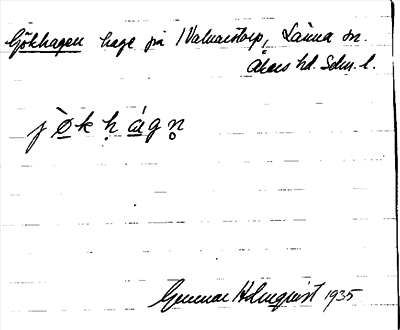 Gökhagen hage på 1 Valmarstorp, Länna sn.
Åkers hd. Sdm. l.
jø̀k ḥág n̥
Gunnar Holmqvist 1935